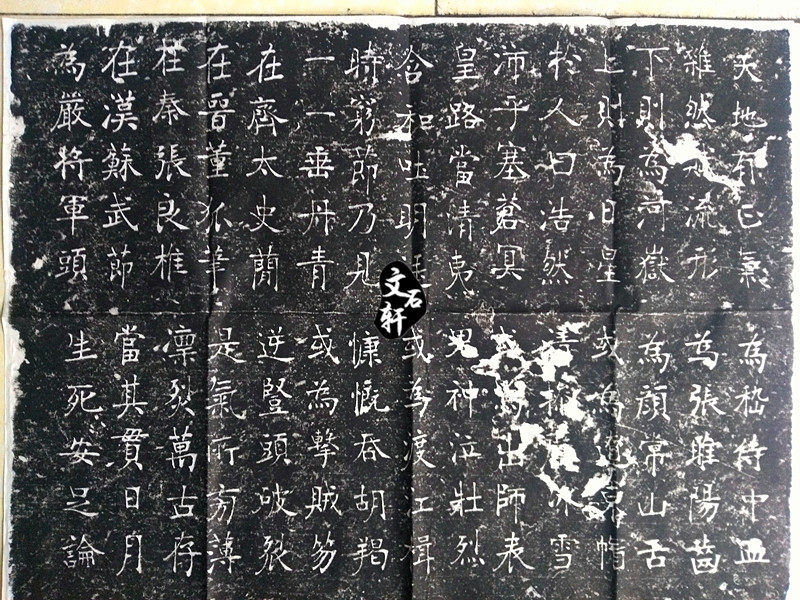 天地有正氣
雜然流形
下則為河嶽
上則為日星
於人曰浩然
沛乎塞蒼冥
皇路當清夷
含和吐明
時窮節乃見
一一垂丹青
在齊太史簡
在晉董狐筆
在秦張良椎
在漢蘇武節
為嚴將軍頭
為嵇侍中血
為張睢陽齒
為顏常山舌
或為遼東帽
清操冰雪
或為出師表
鬼神泣壯烈
或為渡江楫
慷慨吞胡羯
或為擊賊笏
逆豎頭破裂
是氣所旁薄
凛烈萬古存
當其貫日月
生死安足論
文石軒